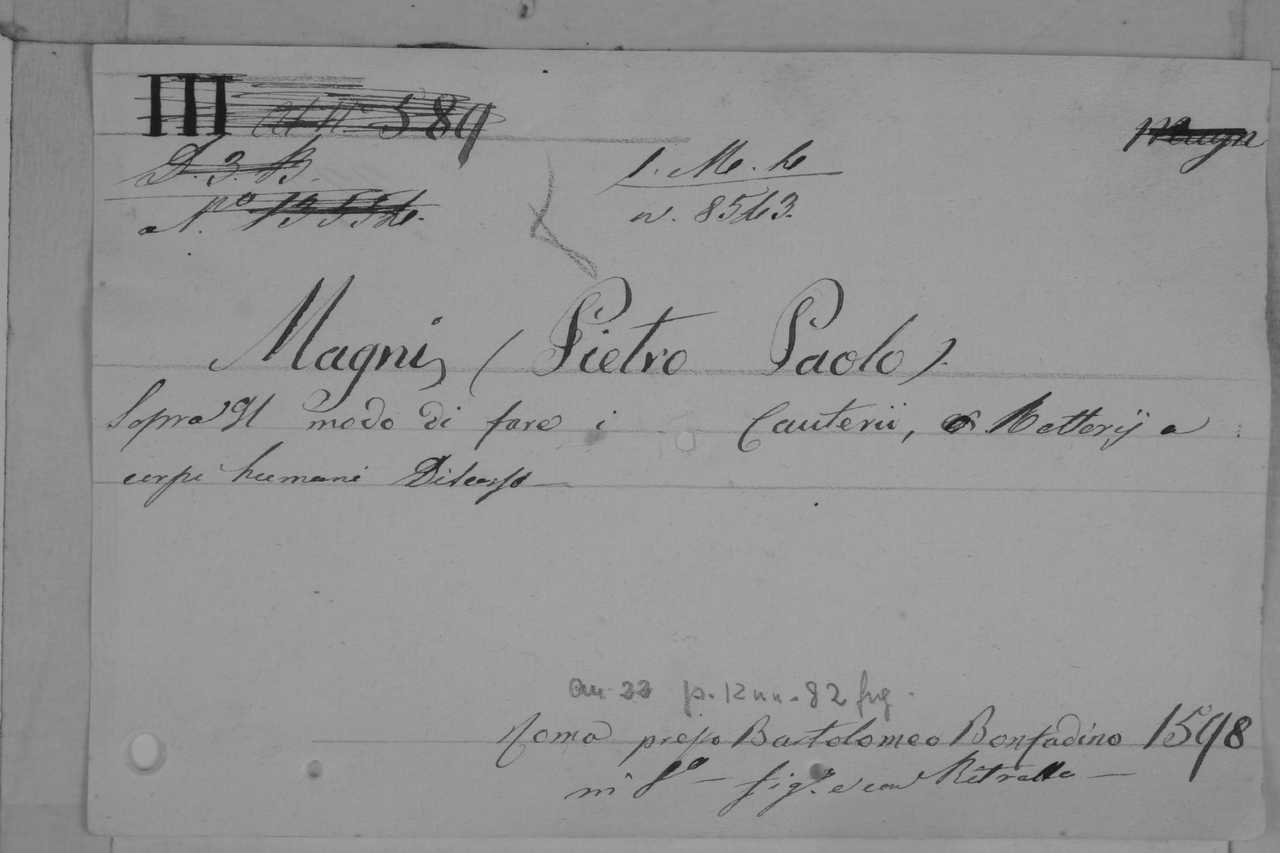 III 589
Magn
D. 3. B.
N.º 13554.
n. 8543.
Magni, (Pietro Paolo).
Sopra Il modo di fare i Cauterii, o Rottorij a
corpi humani Discorso
p. 12 nn. 82 fig.
Roma presso Bartolomeo Bonfadino 1598
in 8º – fig.º e con Ritratto –